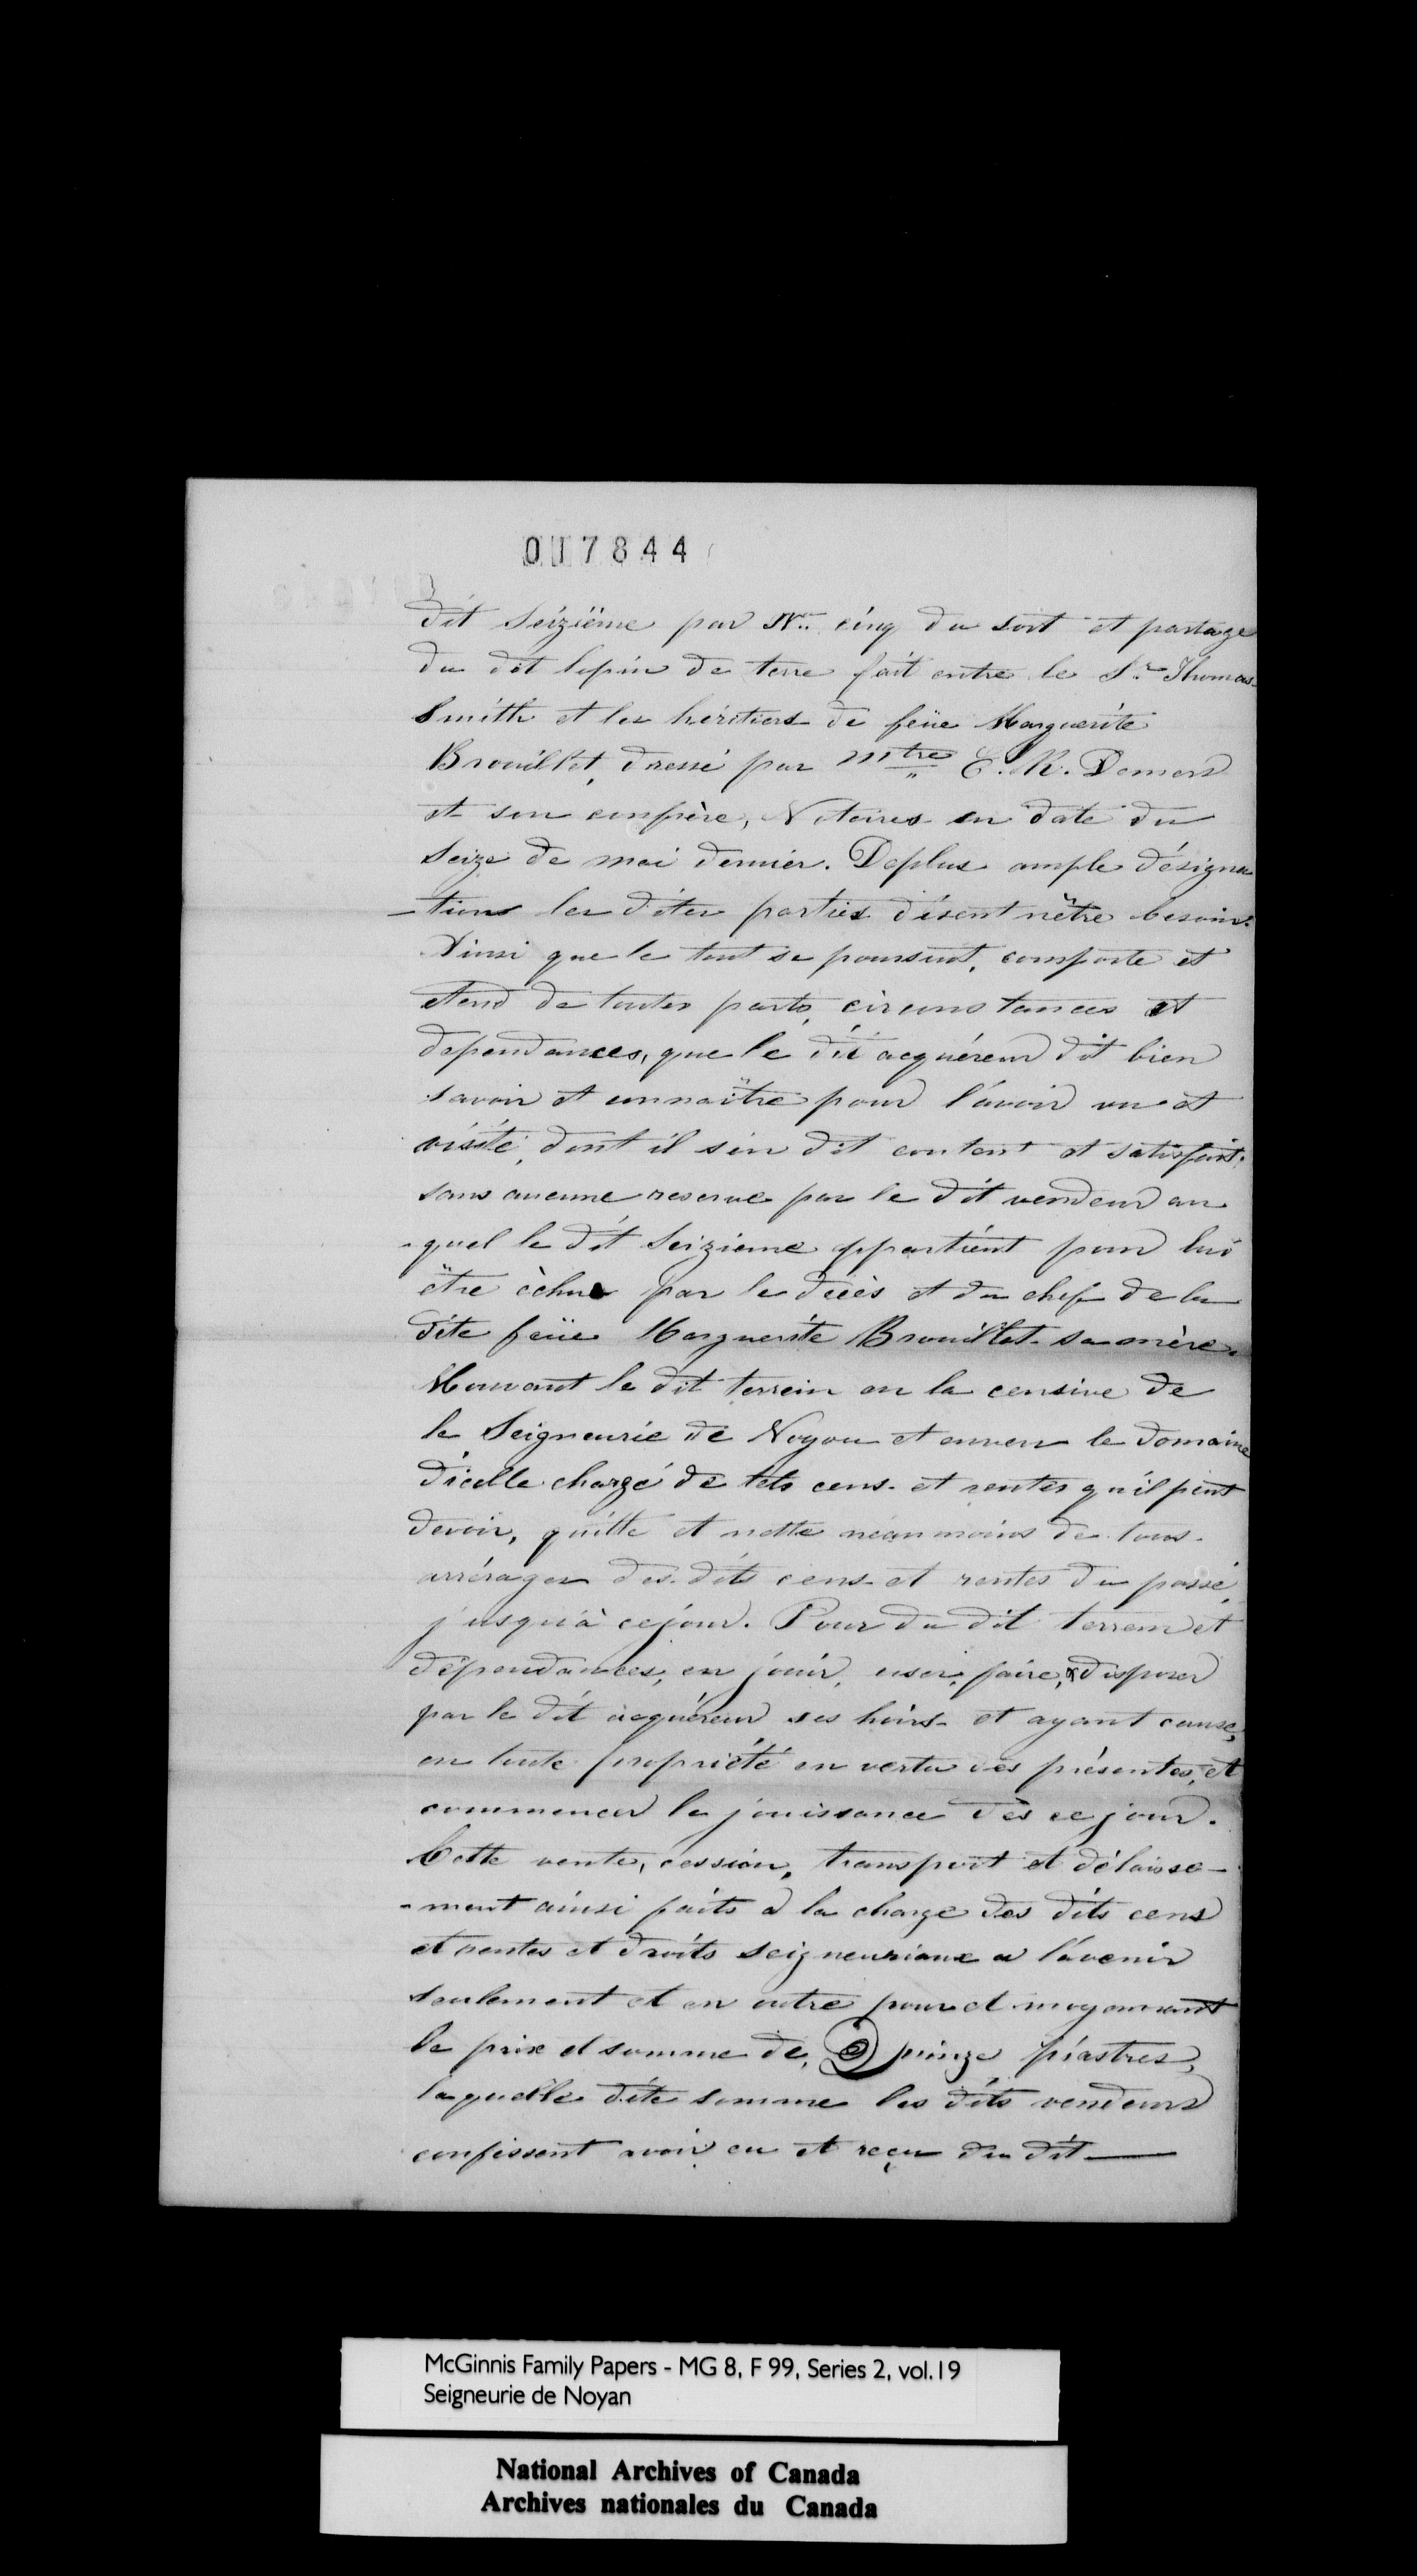 017844
dit Seizième par No. cinq du sort et partage
du dit lopin de terre fait entre le Sr. Thomas
Smith et les héritiers de feüe Marguerite
Brouillet, dressé par Mtre E. R. Demers
et son confrère, Notaires en date du
Seize de mai dernier. Deplus ample désigna
-tions les dites parties disent nêtre besoin.
Ainsi que le tout se poursuit, comporte et
etend de toutes parts, circonstances et
dependances, que le dit acquéreur dit bien
savoir et connaître pour l'avoir vu et
visité, dont il s'en dit content et satisfait.
sans aucune reserve par le dit vendeur au
-quel le dit Seizieme appartient pour lui
être échue par le décès et du chef de la
dite feüe Marguerite Brouillet sa mère.
Mouvant le dit terrein en la censive de
la Seigneurie de Noyan et envers le domaine
d'icelle chargé de tels cens et rentes qu'il peut
devoir, quitte et nette néanmoins de tous
arrérages des dits cens et rentes du passé,
jusqu'à ce jour. Pour du dit terrein et
dépendances, en jouir, user, faire, & disposer
par le dit acquéreur ses hoirs et ayant cause,
en toute propriété en vertu des présentes, et
commencer la jouissance dès ce jour.
Cette vente, cession, transport et délaisse-
-ment ainsi faits à la charge des dits cens
et rentes et droits seigneuriaux a l'avenir
seulement et en outre pour et moyennant
le prix et somme de, Quinze piastres,
laquelle dite somme les dits vendeurs
confessent avoir eu et reçu du dit —
McGinnis Family Papers - MG 8, F 99, Series 2, vol.19
Seigneurie de Noyan
National Archives of Canada
Archives nationales du Canada